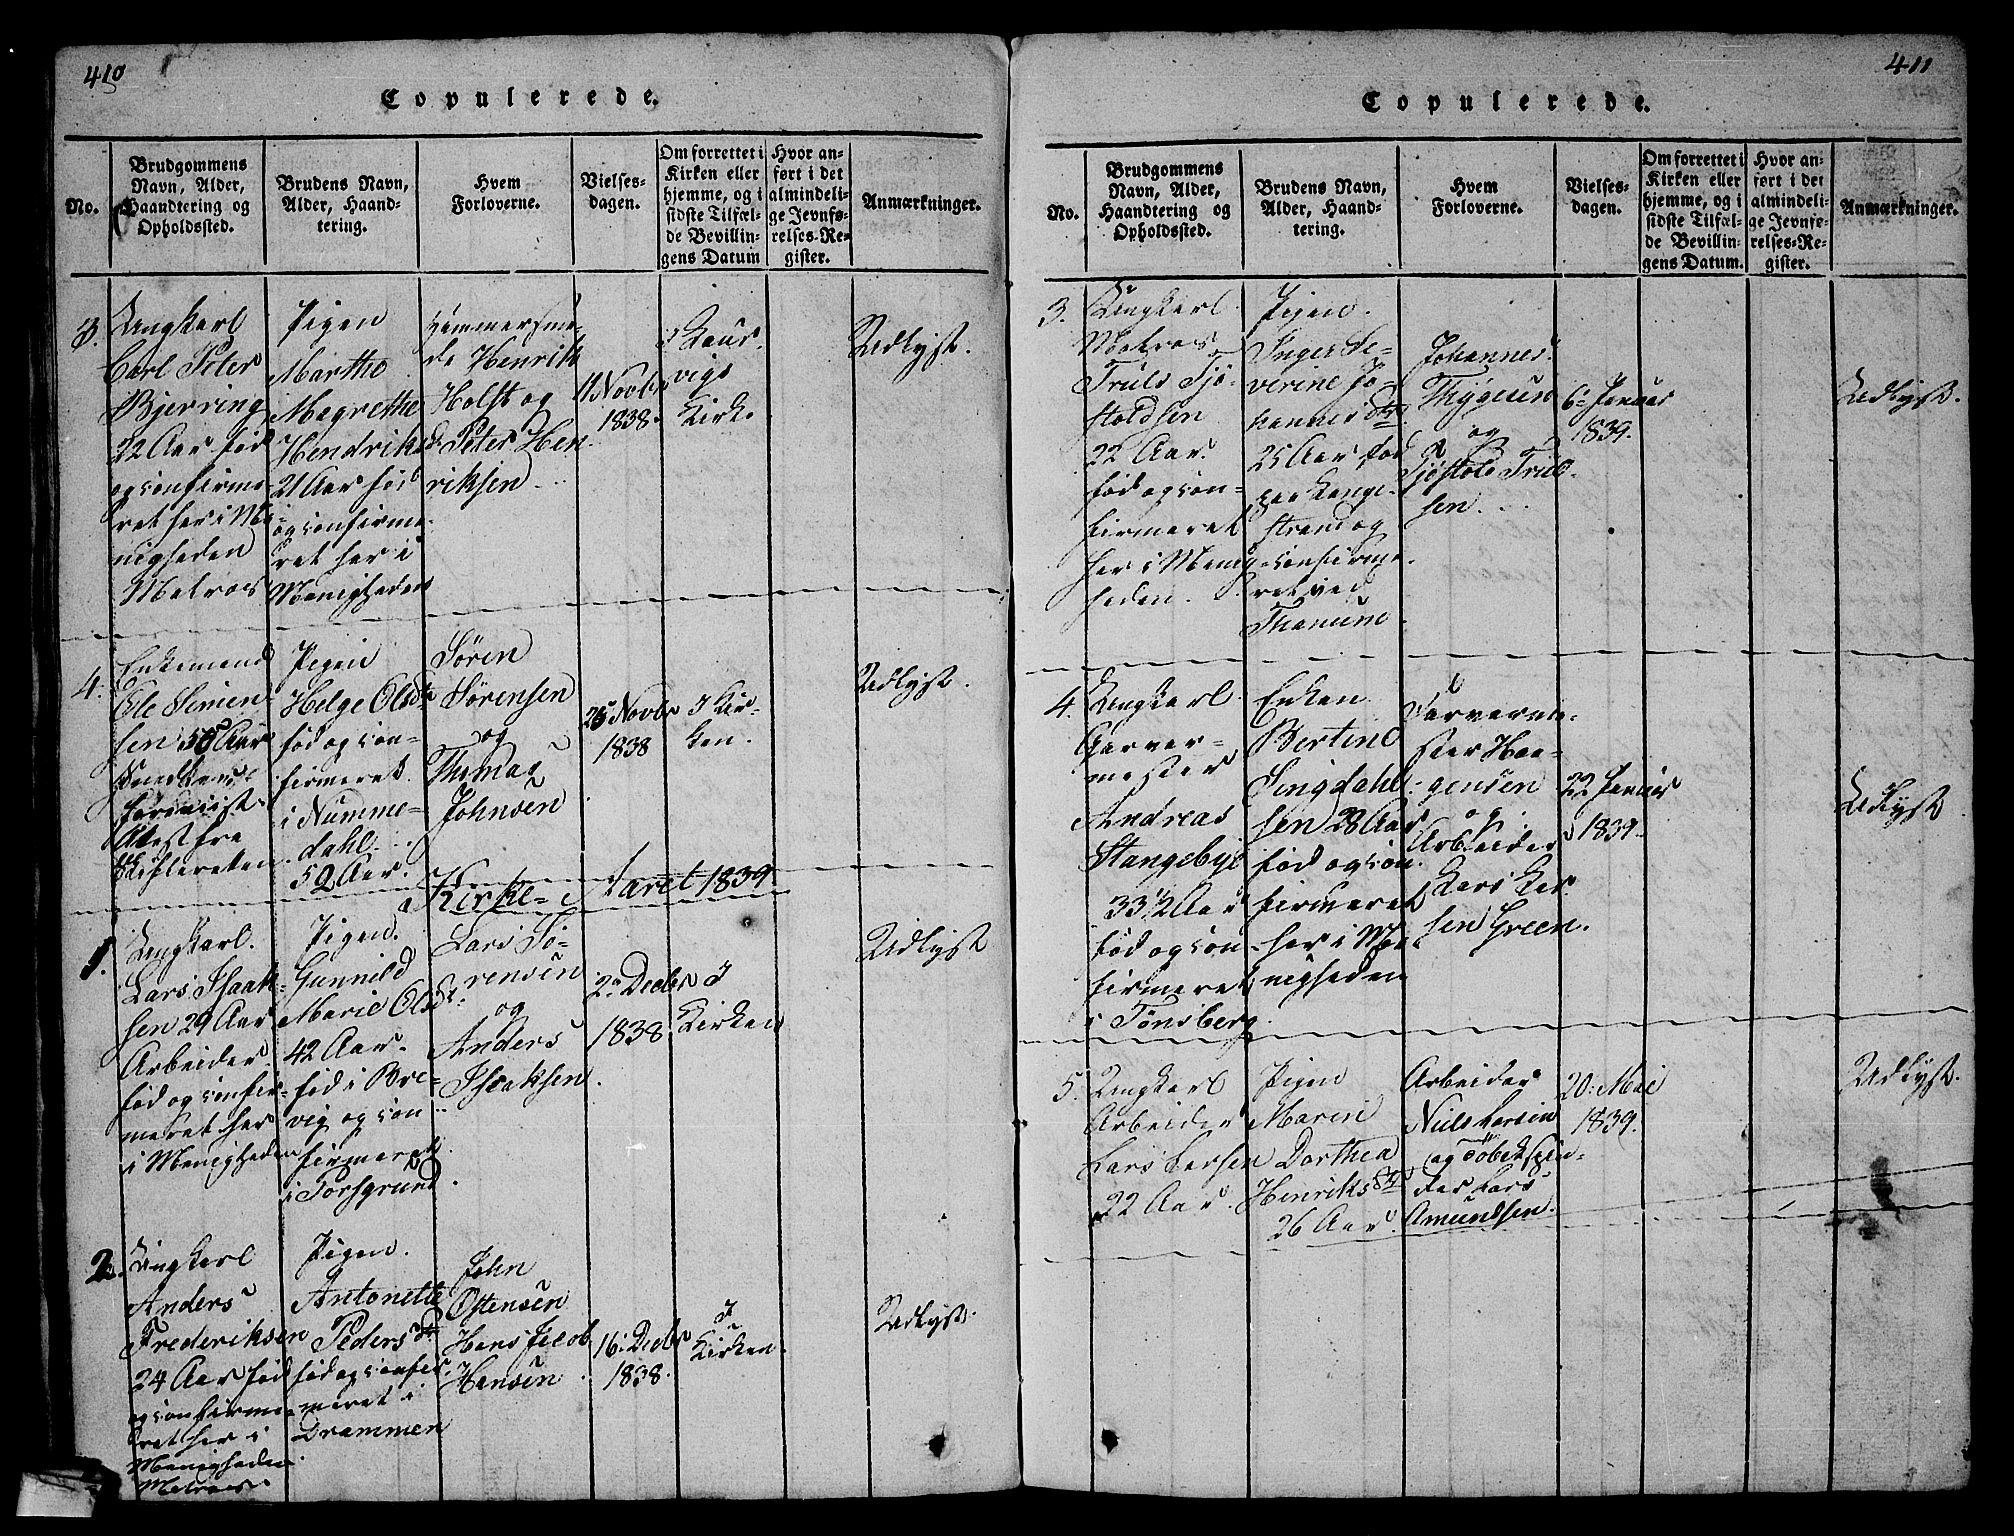 410
Copulerede.
No.
Brudgommens
Navn, Alder,
Haandtering og
Opholdssted.
Brudens Navn,
Alder, Haand-
tering.
Hvem
Forloverne.
Vielses-
dagen.
Om forrettet i
Kirken eller
hjemme, og i
sidste Tilfæl-
de Bevillin-
gens Datum
Hvor an-
ført i det
almindeli-
ge Jevnfø-
relses-Re-
gister.
Anmærkninger.
3.
Ungkarl
Carl Peter
Bjerring
22 Aar fød
og confirme-
ret her i Me-
nigheden
Matros
Pigen
Marthe
Magrethe
Hendriksd.
21 Aar fød
og confirme-
ret her i
Menigheden
Hammersme-
de Henrik
Holst og
Peter Hen-
riksen
11 Novbr
1838.
I Laur-
vigs
Kirke
Udlyst.
4.
Enkemand
Ole Simen-
sen 58 Aar
Attest fra
Skifteretten
Pigen
Helge Olsdr
fød og con-
firmeret
i Numme-
dahl.
52 Aar.
Søren
Sørensen
og
Thomas
Johnsen
25 Novbr
1838
I Kir-
ken.
Udlyst.
Kirke-Aaret 1839
1.
Ungkarl.
Lars Isaak-
sen 29 Aar
Arbeider
fød og confir-
meret her
i Menigheden
Pigen.
Gunnild
Marie Olsdr.
42 Aar.
fød i Bre-
vig og con-
firmeret
i Porsgrund.
Lars Sø-
rensen
og
Anders
Isaksen
2 Decbr
1838
I
Kirken
Udlyst
2.
Ungkarl
Anders
Frederiksen
24 Aar fød
og confirme-
ret her i
Menigheden
Matros
Pigen.
Antonette
Pedersdr.
fød og confir-
meret i
Drammen
John
Ostensen
Hans Jacob
Hansen
16 Decbr
1838.
I
Kirken
Udlyst.
411
Copulerede.
No.
Brudgommens
Navn, Alder,
Haandtering og
Opholdssted.
Brudens Navn,
Alder, Haand-
tering.
Hvem
Forloverne.
Vielses-
dagen.
Om forrettet i
Kirken eller
hjemme, og i
sidste Tilfæl-
de Bevillin-
gens Datum.
Hvor an-
ført i det
almindeli-
ge Jevnfø-
relses-Re-
gister.
Anmærkninger.
3.
Ungkarl
Matros
Truls Tjø-
stoldsen
22 Aar.
fød og con-
firmeret
her i Menig-
heden.
Pigen.
Inger Se-
verine Jo-
hannesdtr.
25 Aar fød
paa Lange-
strand og
confirme-
ret ved
Thanum.
Johannes
Thygesen
og
Tjøstold Trul-
sen.
6 Januar
1839.
Udlyst.
4.
Ungkarl
Garver-
mester
Andreas
Stangebye
33 1/2 Aar
fød og con-
firmeret
i Tønsberg.
Enken
Bertine
Singdahl-
sen 28 Aar
fød og con-
firmeret
her i Me-
nigheden
Garverme-
ster Haa-
gensen
og
Arbeider
Lars Lar-
sen Green.
22 Januar
1839.
Udlyst
5.
Ungkarl
Arbeider
Lars Larsen
22 Aar.
Pigen
Maren
Dorthea
Henriksdtr
26 Aar.
Arbeider
Niels Larsen
og Tobakspin-
der Lars
Amundsen.
20 Mai
1839.
Udlyst.